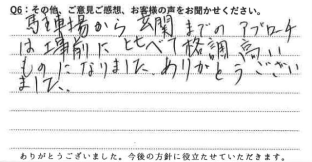 Q6：その他、ご意見ご感想、お客様の声をお聞かせください。
駐車場から玄関までのアプローチ
は工事前に比べて格調高い
ものになりました。ありがとうござい
ました。
ありがとうございました。今後の方針に役立たせていただきます。